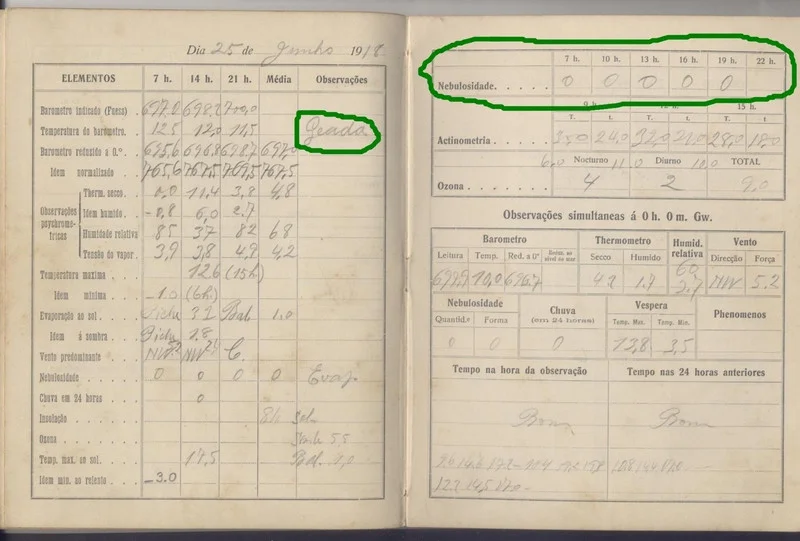 Dia 25 de Junho 1918
ELEMENTOS 7 h. 14 h. 21 h. Média Observações
Barometro indicado (Fuess) 697.0 698.2
Temperatura do barometro. 12.5 12,0 11,5 Geada
Barometro reduzido a 0.º. 695,6 696.8 698.7 697,0
Idem normalizado. 765,6 767.5 769,5 767,5
Observações psychrometricas
Therm. secco. 0,0 11,4 3,8 4,8
Idem humido. -0,8 6,0 2.7
Humidade relativa 85 37 82 68
Tensão do vapor. 3,9 3,8 4,9 4,2
Temperatura maxima 12.6 (15h)
Idem minima -1.0 (6h)
Evaporação ao sol 3.2 1,0
Idem á sombra 1.8
Vento predominante NW NW C.
Nebulosidade 0 0 0 0 Evap.
Chuva em 24 horas 0
Insolação Sol
Ozona 5,5
Temp. max. ao sol. 17,5 1,0
Idem min. ao relento -3.0
7 h. 10 h. 13 h. 16 h. 19 h. 22 h.
Nebulosidade. 0 0 0 0 0
15 h.
T. t. T. t. T. t.
Actinometria 35,0 24,0 32,0 21,0 28,0 18,0
Nocturno Diurno TOTAL
Ozona 4 2 9,0
Observações simultaneas á 0 h. 0 m. Gw.
Barometro Thermometro Humid. relativa Vento
Leitura Temp. Red. a 0º Secco Humido Direcção Força
10,0 696.7 4.2 1.7 60 NW 5.2
Nebulosidade Chuva (em 24 horas) Vespera Phenomenos
Quantid.e Forma Temp. Max. Temp. Min.
0 0 0 13,8 3,5
Tempo na hora da observação Tempo nas 24 horas anteriores
Bom Bom